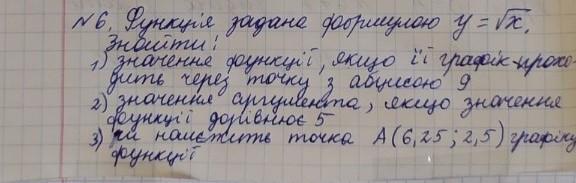 №6. Функція задана формулою y = √x.
Знайти:
1) значення функції, якщо її графік прохо-
дить через точку з абцисою 9
2) значення аргумента, якщо значення
функції дорівнює 5
3) чи належить точка А(6,25; 2,5) графіку
функції